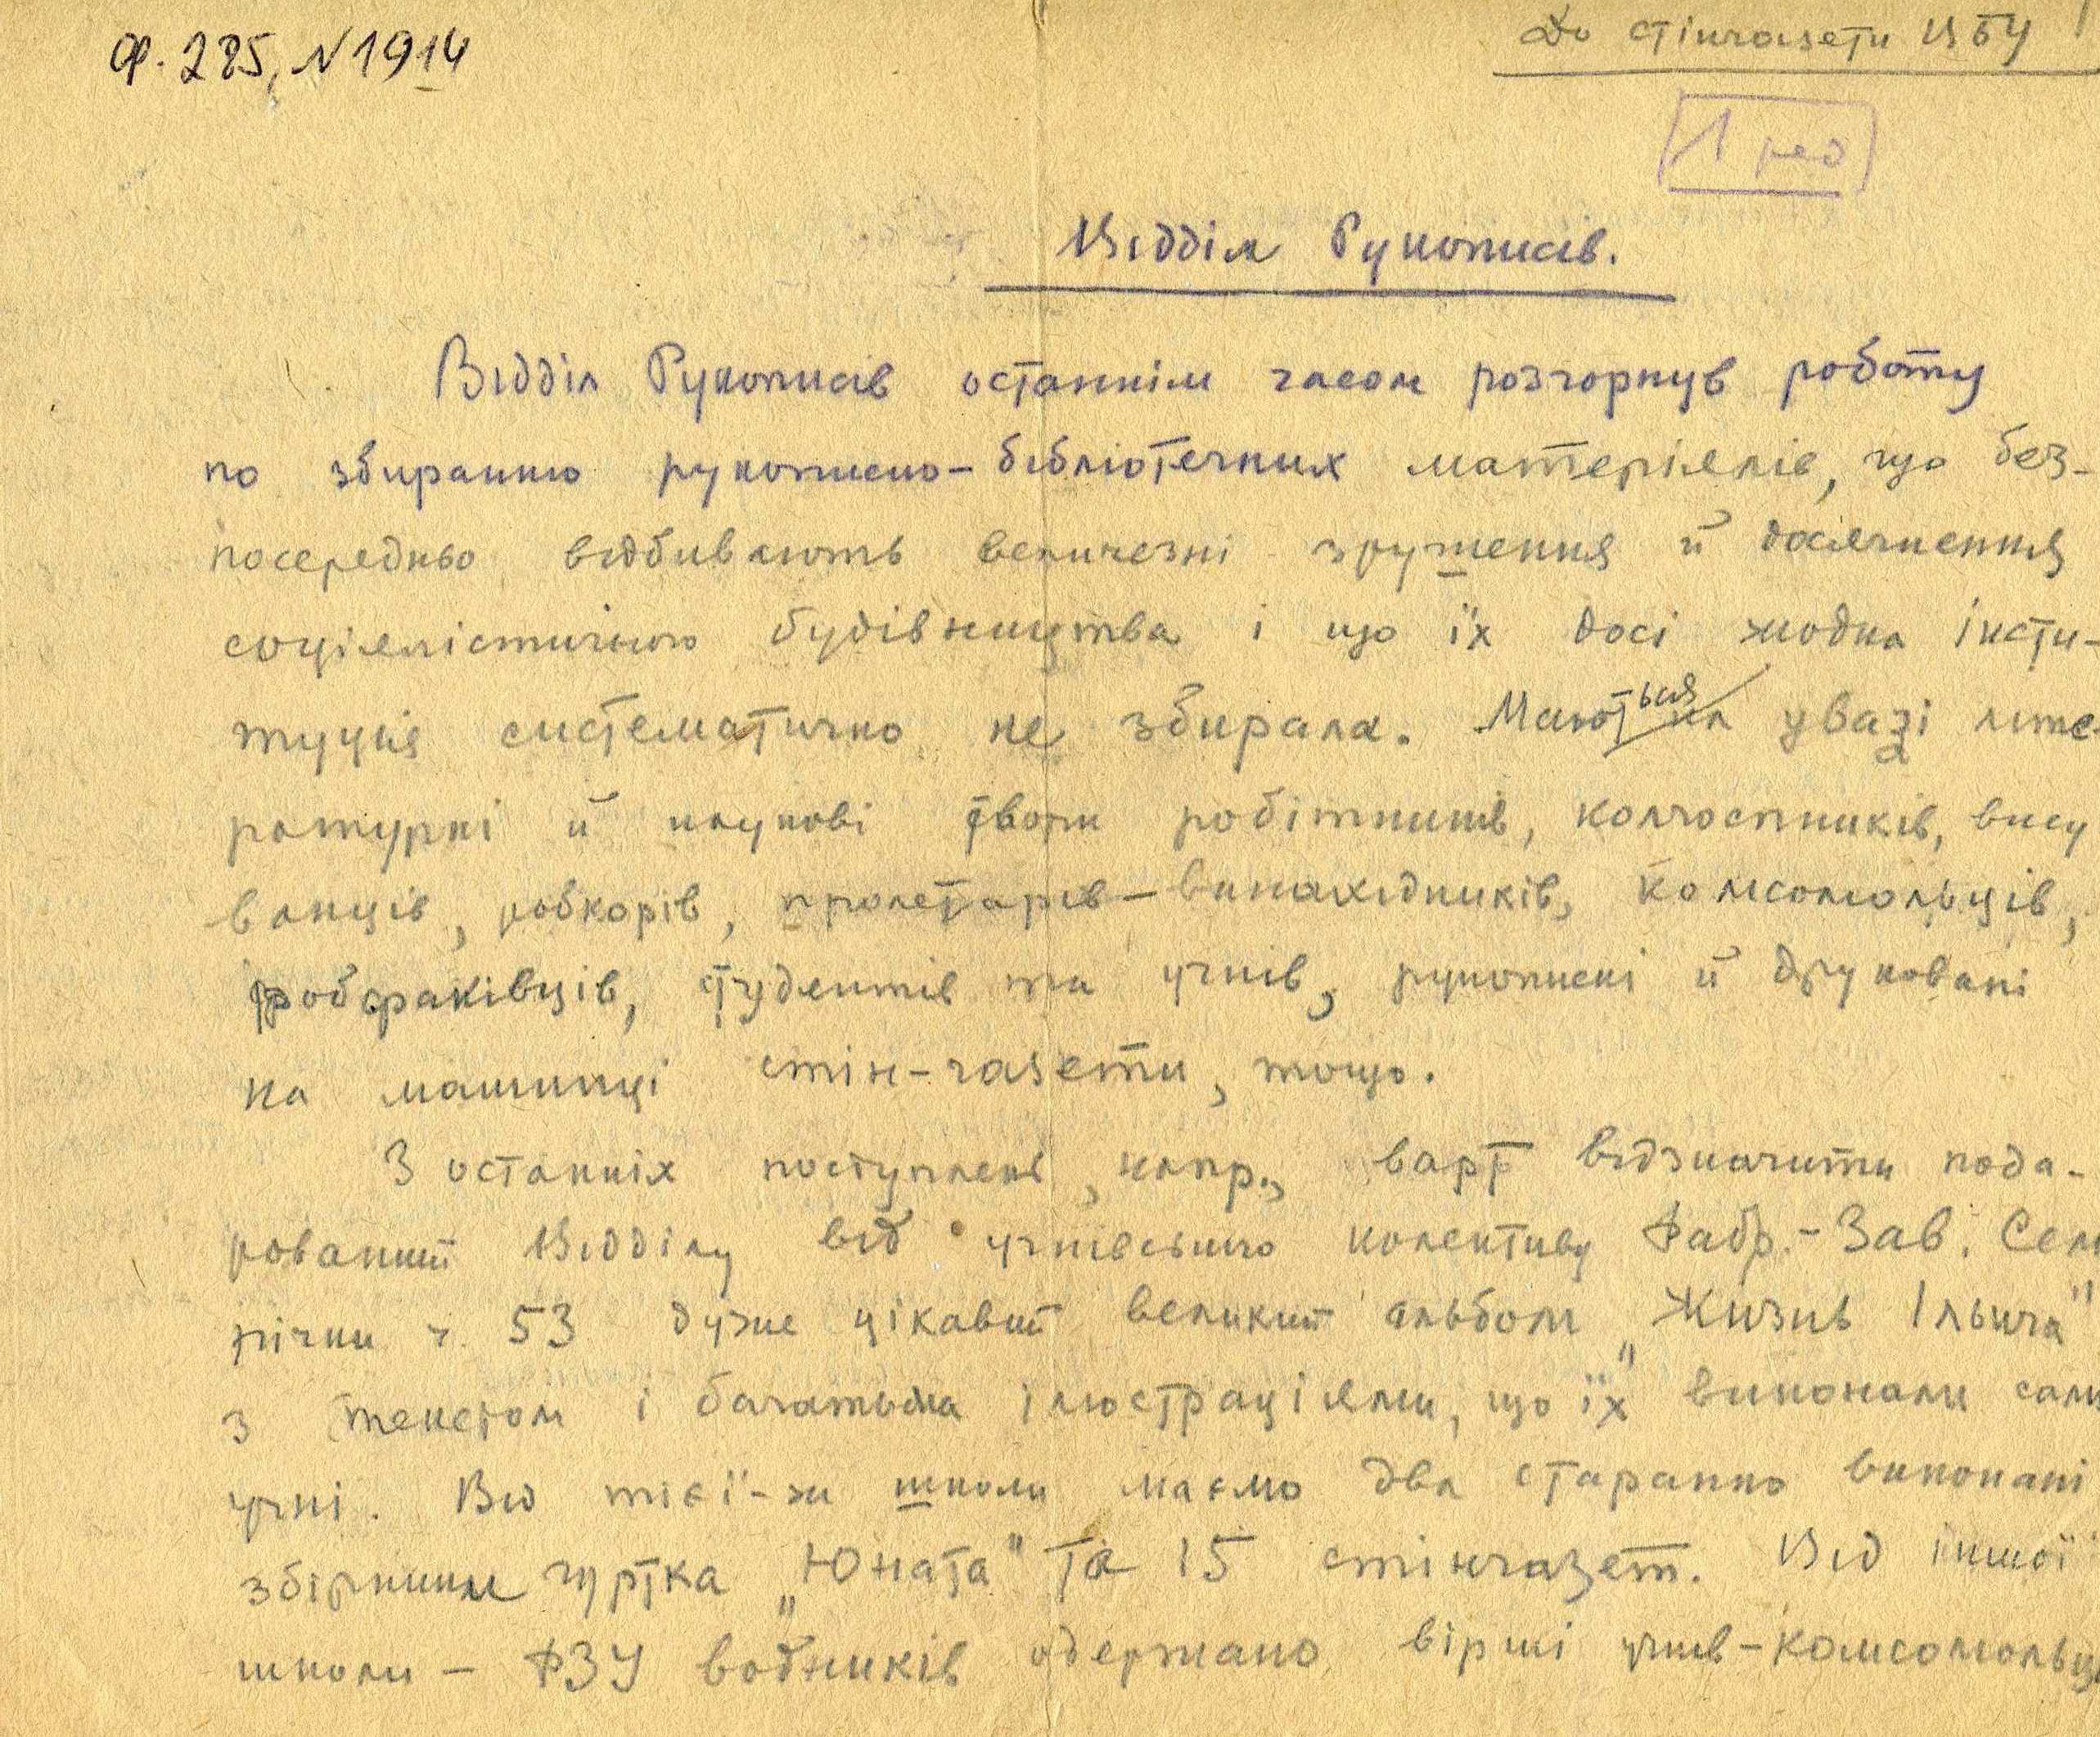 Ф. 285, N 1914
До стінгазети ЦБУ
1 ред
Відділ Рукописів.
Відділ Рукописів останнім часом розгорнув роботу
по збиранню рукописно-бібліотечних матеріялів, що без-
посередньо відбивають величезні зрушення й досягнення
соціялістичного будівництва і що їх досі жодна інсти-
туція систематично не збирала. Маються увазі літе-
ратурні й наукові твори робітників, колгоспників, вису
ванців, робкорів, пролетарів-винахідників, комсомольців,
робфаківців, студентів та учнів, рукописні й друковані
на машинці стін-газети, тощо.
З останніх поступлень, напр., варт відзначити пода-
рований Відділу від учнівського колективу Фабр.-Зав. Семи
річки ч. 53 дуже цікавий великий альбом „Жизнь Ільича"
з текстом і багатьма ілюстраціями, що їх виконали сами
учні. Від тієї-ж школи маємо два старанно виконані
збірники гуртка „Юната" та 15 стінгазет. Від іншої
школи – ФЗУ водників одержано вірші учнів-комсомольці